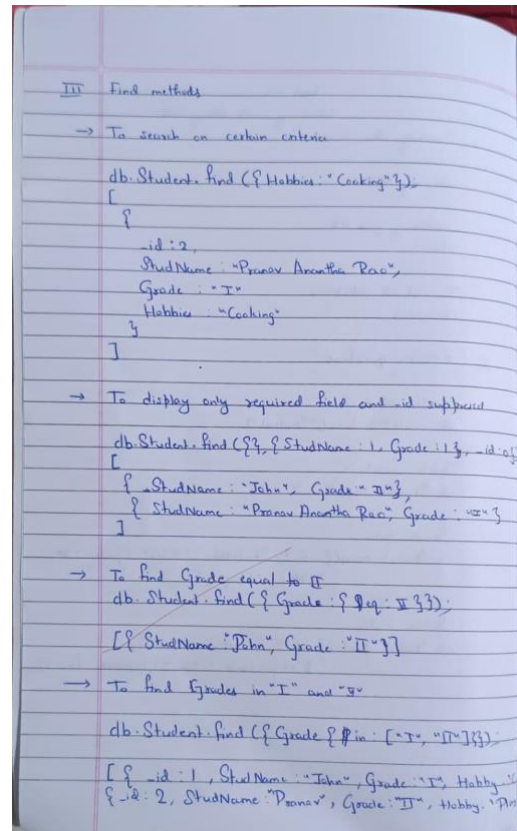 III Find methods
→ To search on certain criteria
db.Student.find({Hobbies:"Cooking"});
[
{
_id:2,
StudName:"Pranav Anantha Rao",
Grade:"I"
Hobbies:"Cooking"
}
]
→ To display only required field and _id suppressed
db.Student.find({},{StudName:1, Grade:1}, _id:0}
[
{ StudName:"John", Grade"II"},
{ StudName:"Pranav Anantha Rao", Grade:"II"}
]
→ To find Grade equal to II
db.Student.find({Grade:{$eq:II}});
[{ StudName:"John", Grade:"II"}]
→ To find Grades in "I" and "II"
db.Student.find({Grade{$in:["I","II"]}});
[{ _id:1, StudName:"John", Grade:"I", Hobby:
{_id:2, StudName:"Pranav", Grade:"II", Hobby: